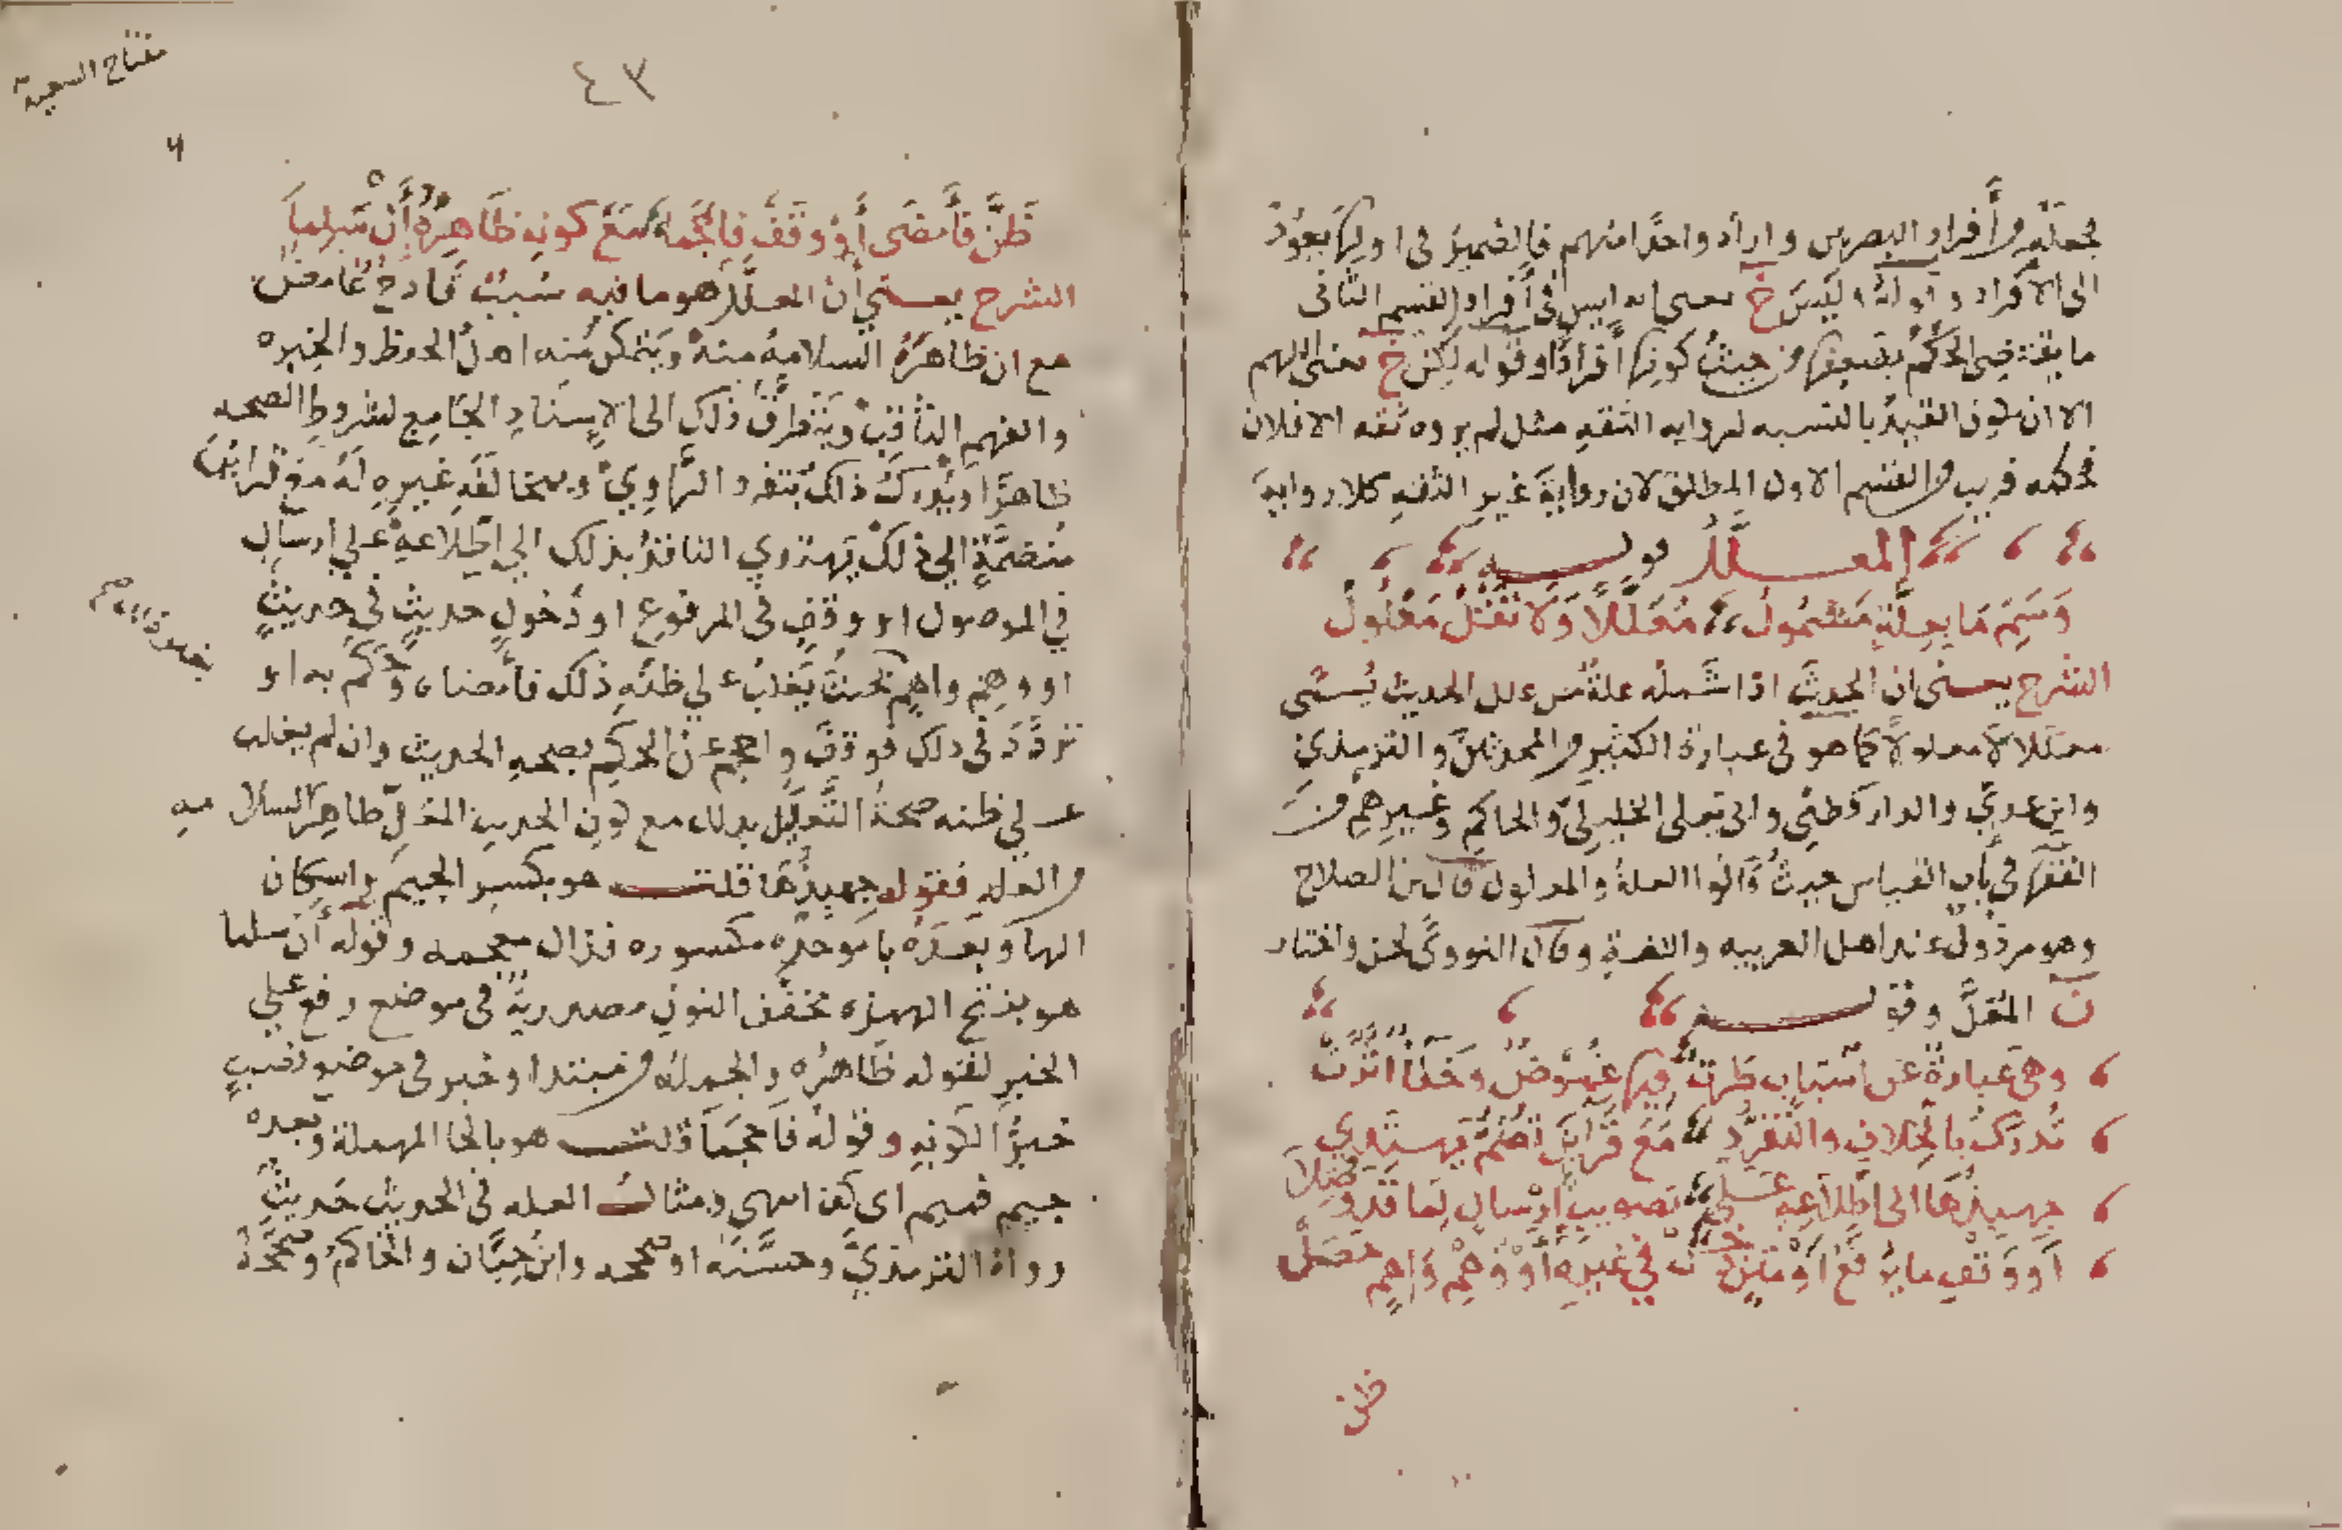 فجعلته من أفراد البصريين واراد واحدًا منهم فالضمير فى اولها يعود
الى الافراد وقوله وليس خ يعنى انه ليس فى أفراد القسم الثانى
ما يقتضى الحكم بضعفها من حيث كونها أفرادًا وقوله لكن خ يعنى اللهم
الا ان يكون القيد بالنسبه لروايه الثقه مثل لم يروه ثقه الا فلان
فحكمه قريب من القسم الاول المطلق لان رواية غير الثقه كلا روايه
المعلَّل قوله
وَسَمِّ مَا بِعِلَّةٍ مَشْمُولُ مُعَلَّلًا وَلَا تَقُلْ مَعْلُولُ
الشرح يعنى ان الحديث اذا شمله علة من علل الحديث يُسمَّى
معللا لا معلولا كما هو فى عبارة الكثير من المحدثين والترمذي
وابن عدي والدارقطني وابى يعلى الخليلي والحاكم وغيرهم ومن
الفقها فى باب القياس حيث قالوا العلة والمعلول قال بن الصلاح
وهو مرذول عند اهل العربيه واللغة وقال النووي لحن واختار
ن المُعَلّ وقوله
وهى عبارة عن أسباب طرت فيها غموض وخفاء أثّرت
تُدرك بالخلاف والتفرد مع قرائن تُضَمّ يهتدي
جهبذها الى اطلاعه على تصويب إرسال لما قد وُصِلَا
أو وقف ما يرفع أو متن دخل في غيره أو وهم واهم حصل
ظن
٤٣
مفتاح السعيدية
ظَنَّ فأمضى أو وقف فأحجما مع كونه ظاهره أن سلما
الشرح يعني أن المعلل هو ما فيه سبب قادح غامض
مع ان ظاهره السلامة منه ويتمكن منه اهل الحفظ والخبره
والفهم الثاقب ويتطرق ذلك الى الاسناد الجامع لشروط الصحه
ظاهرًا ويدرك ذلك بتفرد الراوي وبمخالفه غيره له مع قرائن
منضمة الى ذلك يهتدي الناقد بذلك الى اطلاعه على ارسال
في الموصول او وقف فى المرفوع او دخول حديث في حديث
او وهم واهم بحيث يغلب على ظنه ذلك فأمضاه وحكم به او
تردد فى ذلك فوقف واحجم عن الحكم بصحه الحديث وان لم يغلب
على ظنه صحة التعليل بذلك مع كون الحديث المعل ظاهر السلامه
من العله فقوله جهبذها قلت هو بكسر الجيم واسكان
الها وبعده با موحده مكسوره فذال معجمه وقوله أن سلما
هو بفتح الهمزه مخفف النون مصدرية فى موضع رفع على
الخبر لقوله ظاهره والجمله من مبتدا وخبر فى موضع نصب
خبرًا لكونه وقوله فأحجما قلت هو بالحا المهملة وبعده
جيم فميم اى كف انتهى ومثال العله فى الحديث حديث
رواه الترمذي وحسنه او صححه وابن حبان والحاكم وصححه